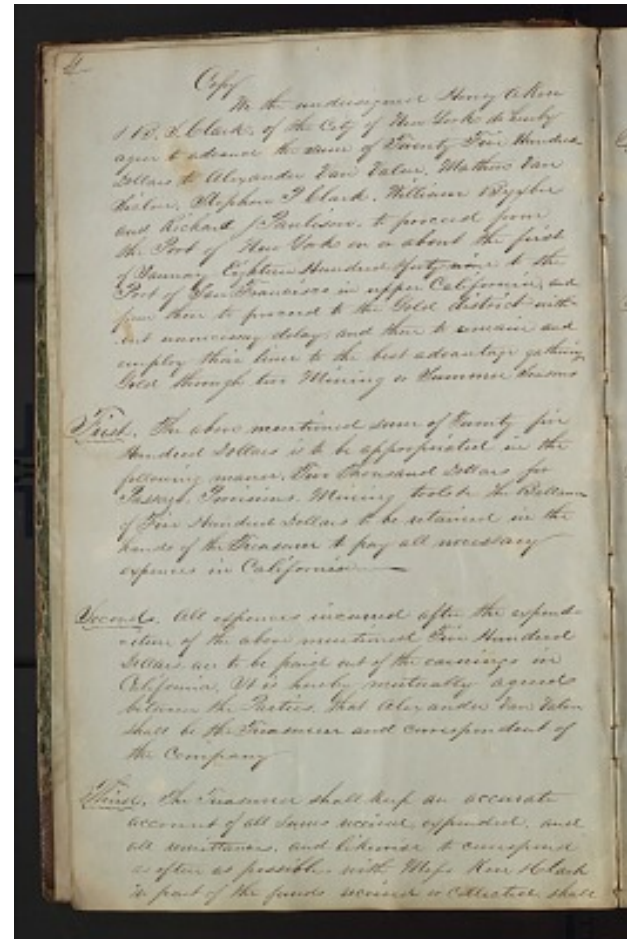 4
Copy
We the undersigned Henry A Kerr
& B. S. Clark, of the City of New York do hereby
agree to advance the sum of Twenty Five Hundred
Dollars to Alexander Van Valen, Mathew Van
Stephen P Clark, William
and Richard J Paulison, to proceed from
the Port of New York on or about the first
of January Eighteen Hundred forty nine to the
Port of San Francisco in upper California, and
from there to proceed to the Gold district with-
out unnecessary delay, and there to remain and
employ their time to the best advantage gathering
Gold through two Mining or Summer Seasons
First. The above mentioned sum of Twenty five
Hundred Dollars is to be appropriated in the
following manner. Two thousand Dollars for
Passage, Provisions, Mining tools &c The Ballance
of Five Hundred Dollars to be retained in the
hands of the Treasurer to pay all necessary
expences in California
Second. All expences incurred after the expend-
iture of the above mentioned Five Hundred
Dollars are to be paid out of the earnings in
California. It is hereby mutually agreed
between the Parties, that Alexander Van Valen
shall be the Treasurer and correspondent of
the Company
Third. The Treasurer shall keep an accurate
account of all sums received, expended, and
all remittances, and likewise to correspond
as often as possible with Messrs Kerr & Clark
in part of the funds received or collected shall